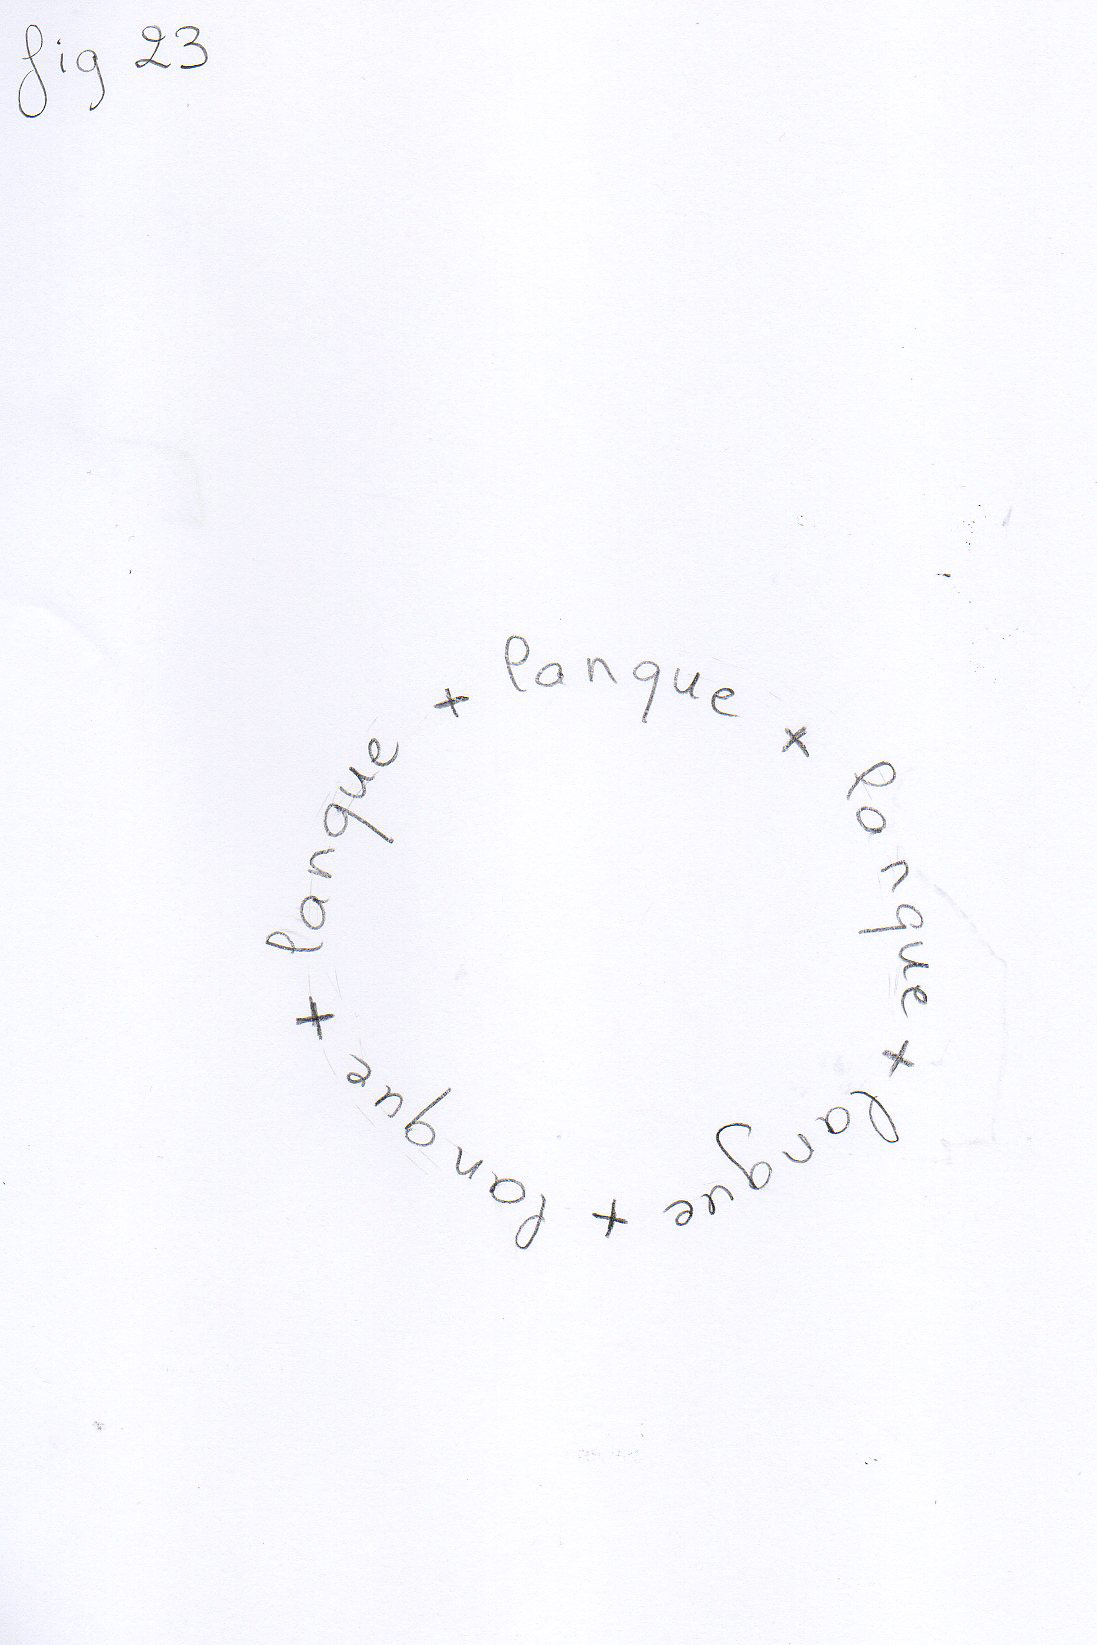 fig 23
langue + langue + langue + langue + langue +